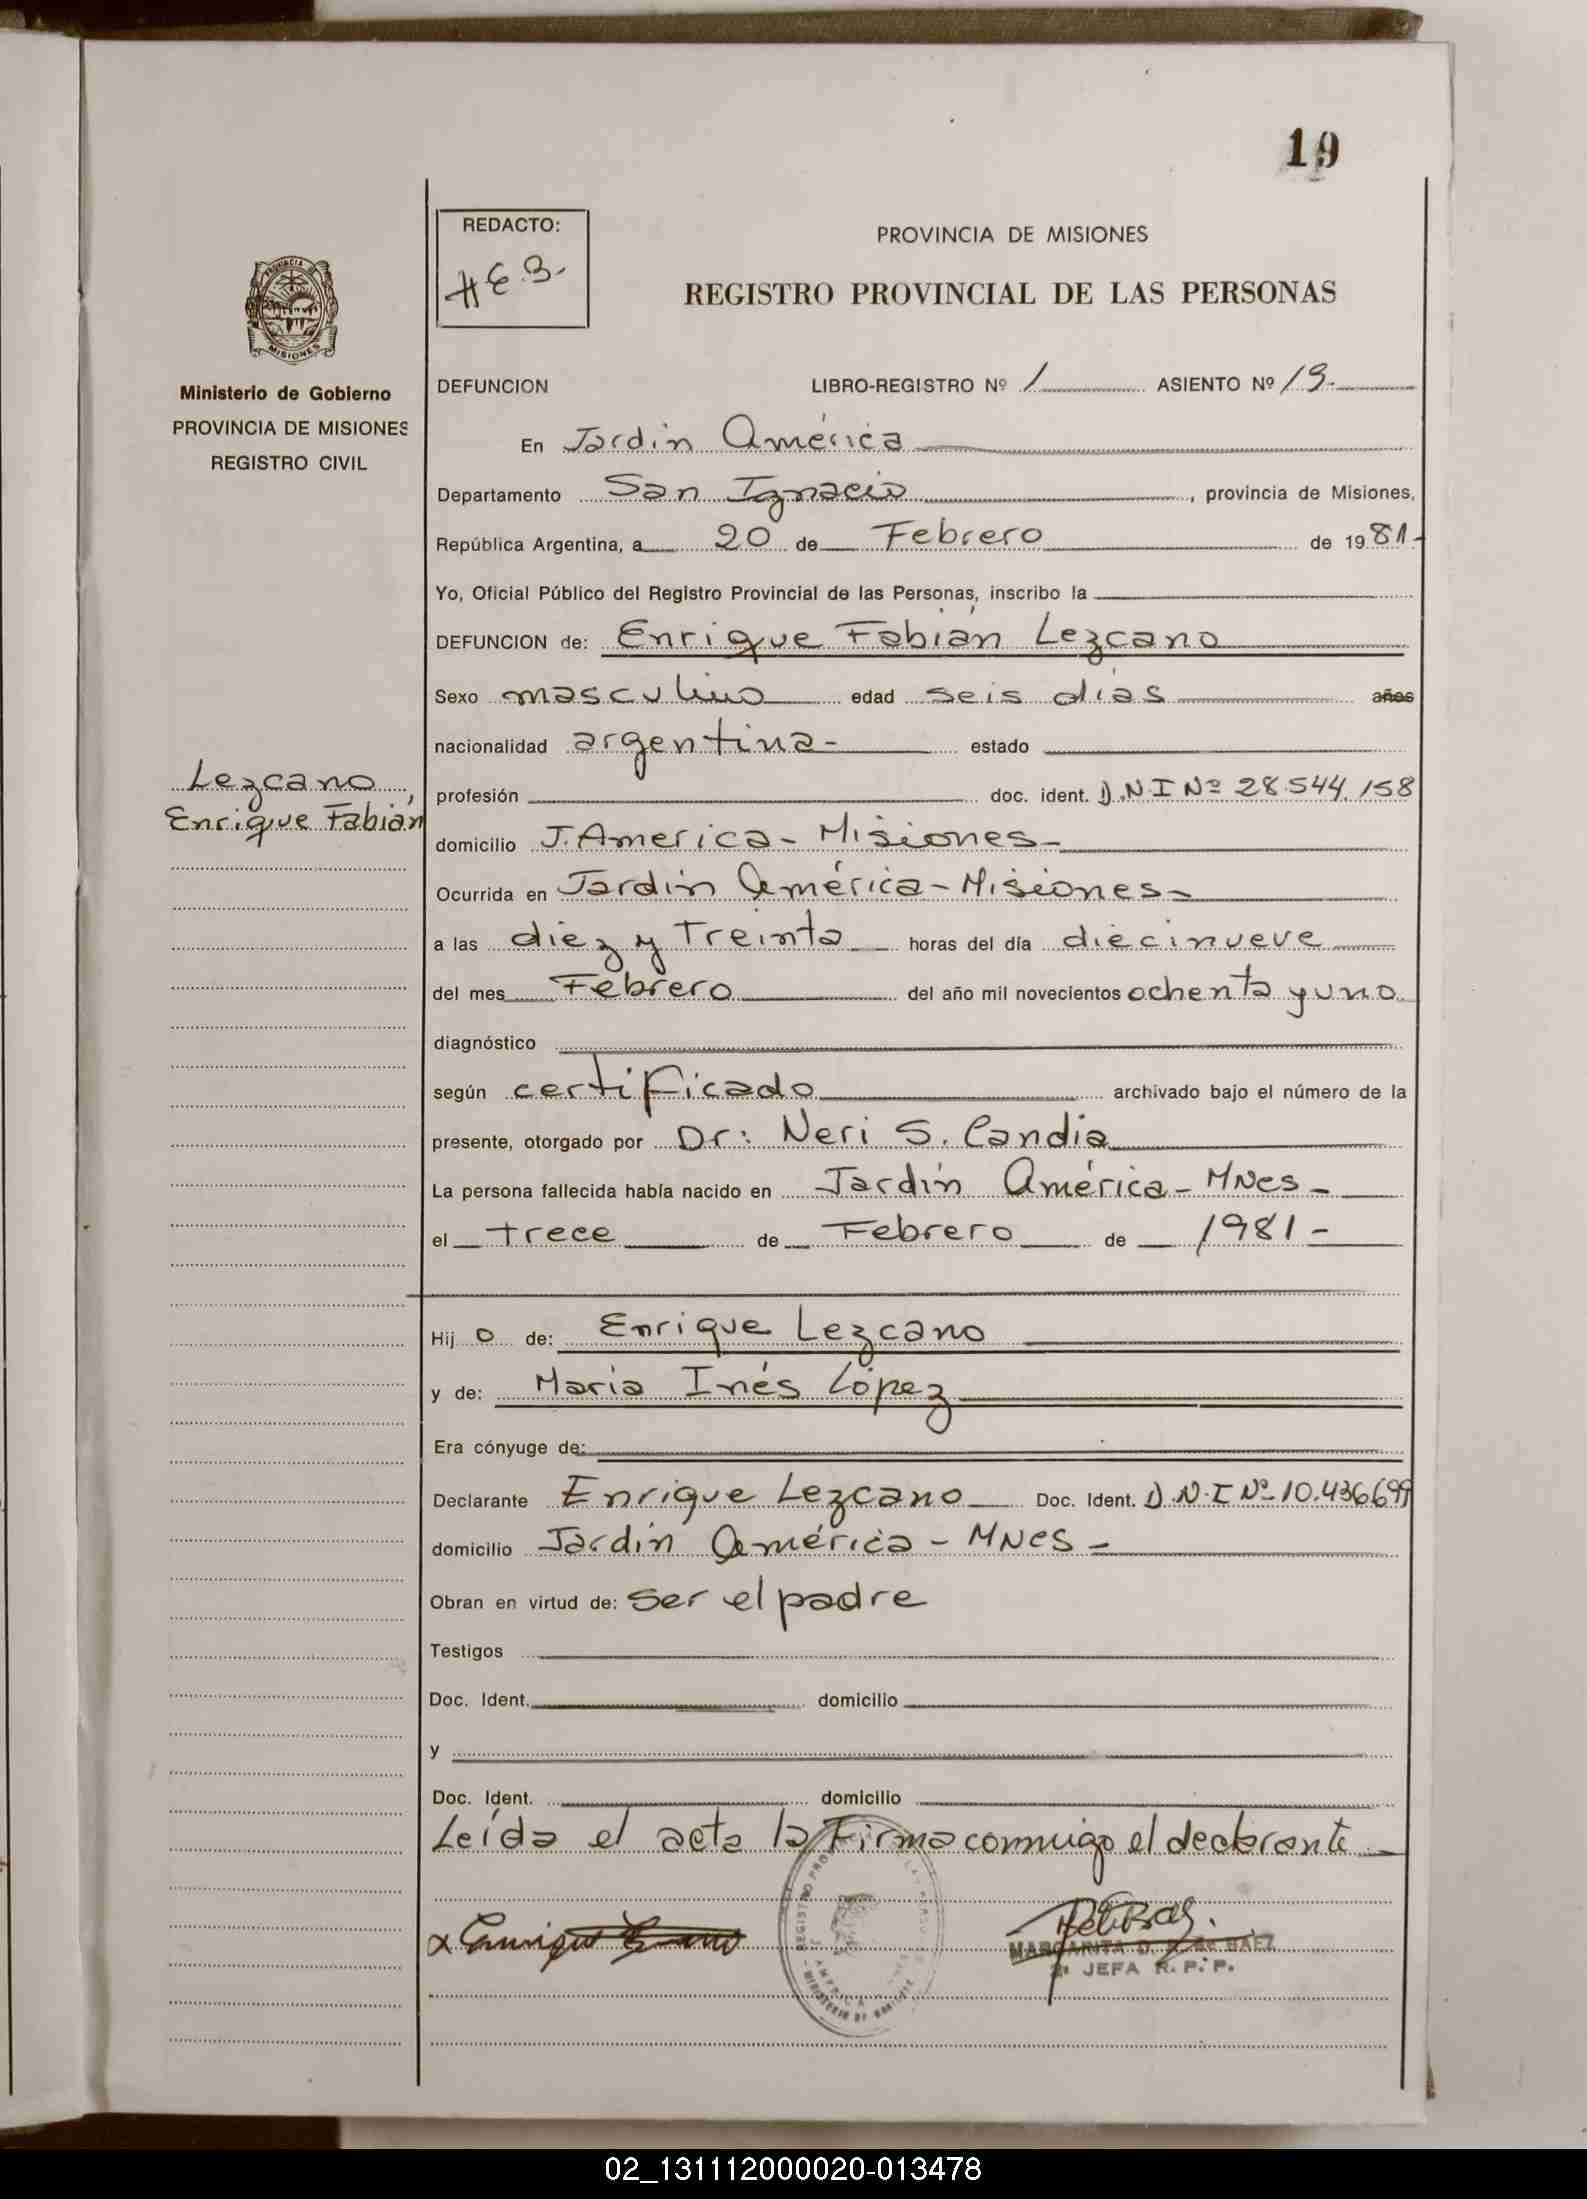 19
REDACTO:
H E B.
PROVINCIA DE MISIONES
REGISTRO PROVINCIAL DE LAS PERSONAS
PROVINCIA DE
MISIONES
Ministerio de Gobierno
PROVINCIA DE MISIONES
REGISTRO CIVIL
DEFUNCION LIBRO-REGISTRO Nº 1 ASIENTO Nº 19.
En Jardín América
Departamento San Ignacio, provincia de Misiones,
República Argentina, a 20 de Febrero de 1981-
Yo, Oficial Público del Registro Provincial de las Personas, inscribo la
DEFUNCION de: Enrique Fabián Lezcano
Sexo masculino edad seis días años
nacionalidad argentina- estado
Lezcano,
Enrique Fabián
profesión doc. ident. D.N.I Nº 28.544.158
domicilio J. America - Misiones-
Ocurrida en Jardín América - Misiones-
a las diez y Treinta horas del día diecinueve
del mes Febrero del año mil novecientos ochenta y uno
diagnóstico
según certificado archivado bajo el número de la
presente, otorgado por Dr: Neri S. Candia
La persona fallecida había nacido en Jardín América - MNes-
el trece de Febrero de 1981-
Hijo de: Enrique Lezcano
y de: María Inés López
Era cónyuge de:
Declarante Enrique Lezcano Doc. Ident. D.N.I Nº 10.436.699
domicilio Jardín América - MNes-
Obran en virtud de: ser el padre
Testigos
Doc. Ident. domicilio
y
Doc. Ident. domicilio
Leída el acta la Firma conmigo el declarante
MARGARITA D. de BAEZ
2ª JEFA R. P. P.
02_131112000020-013478